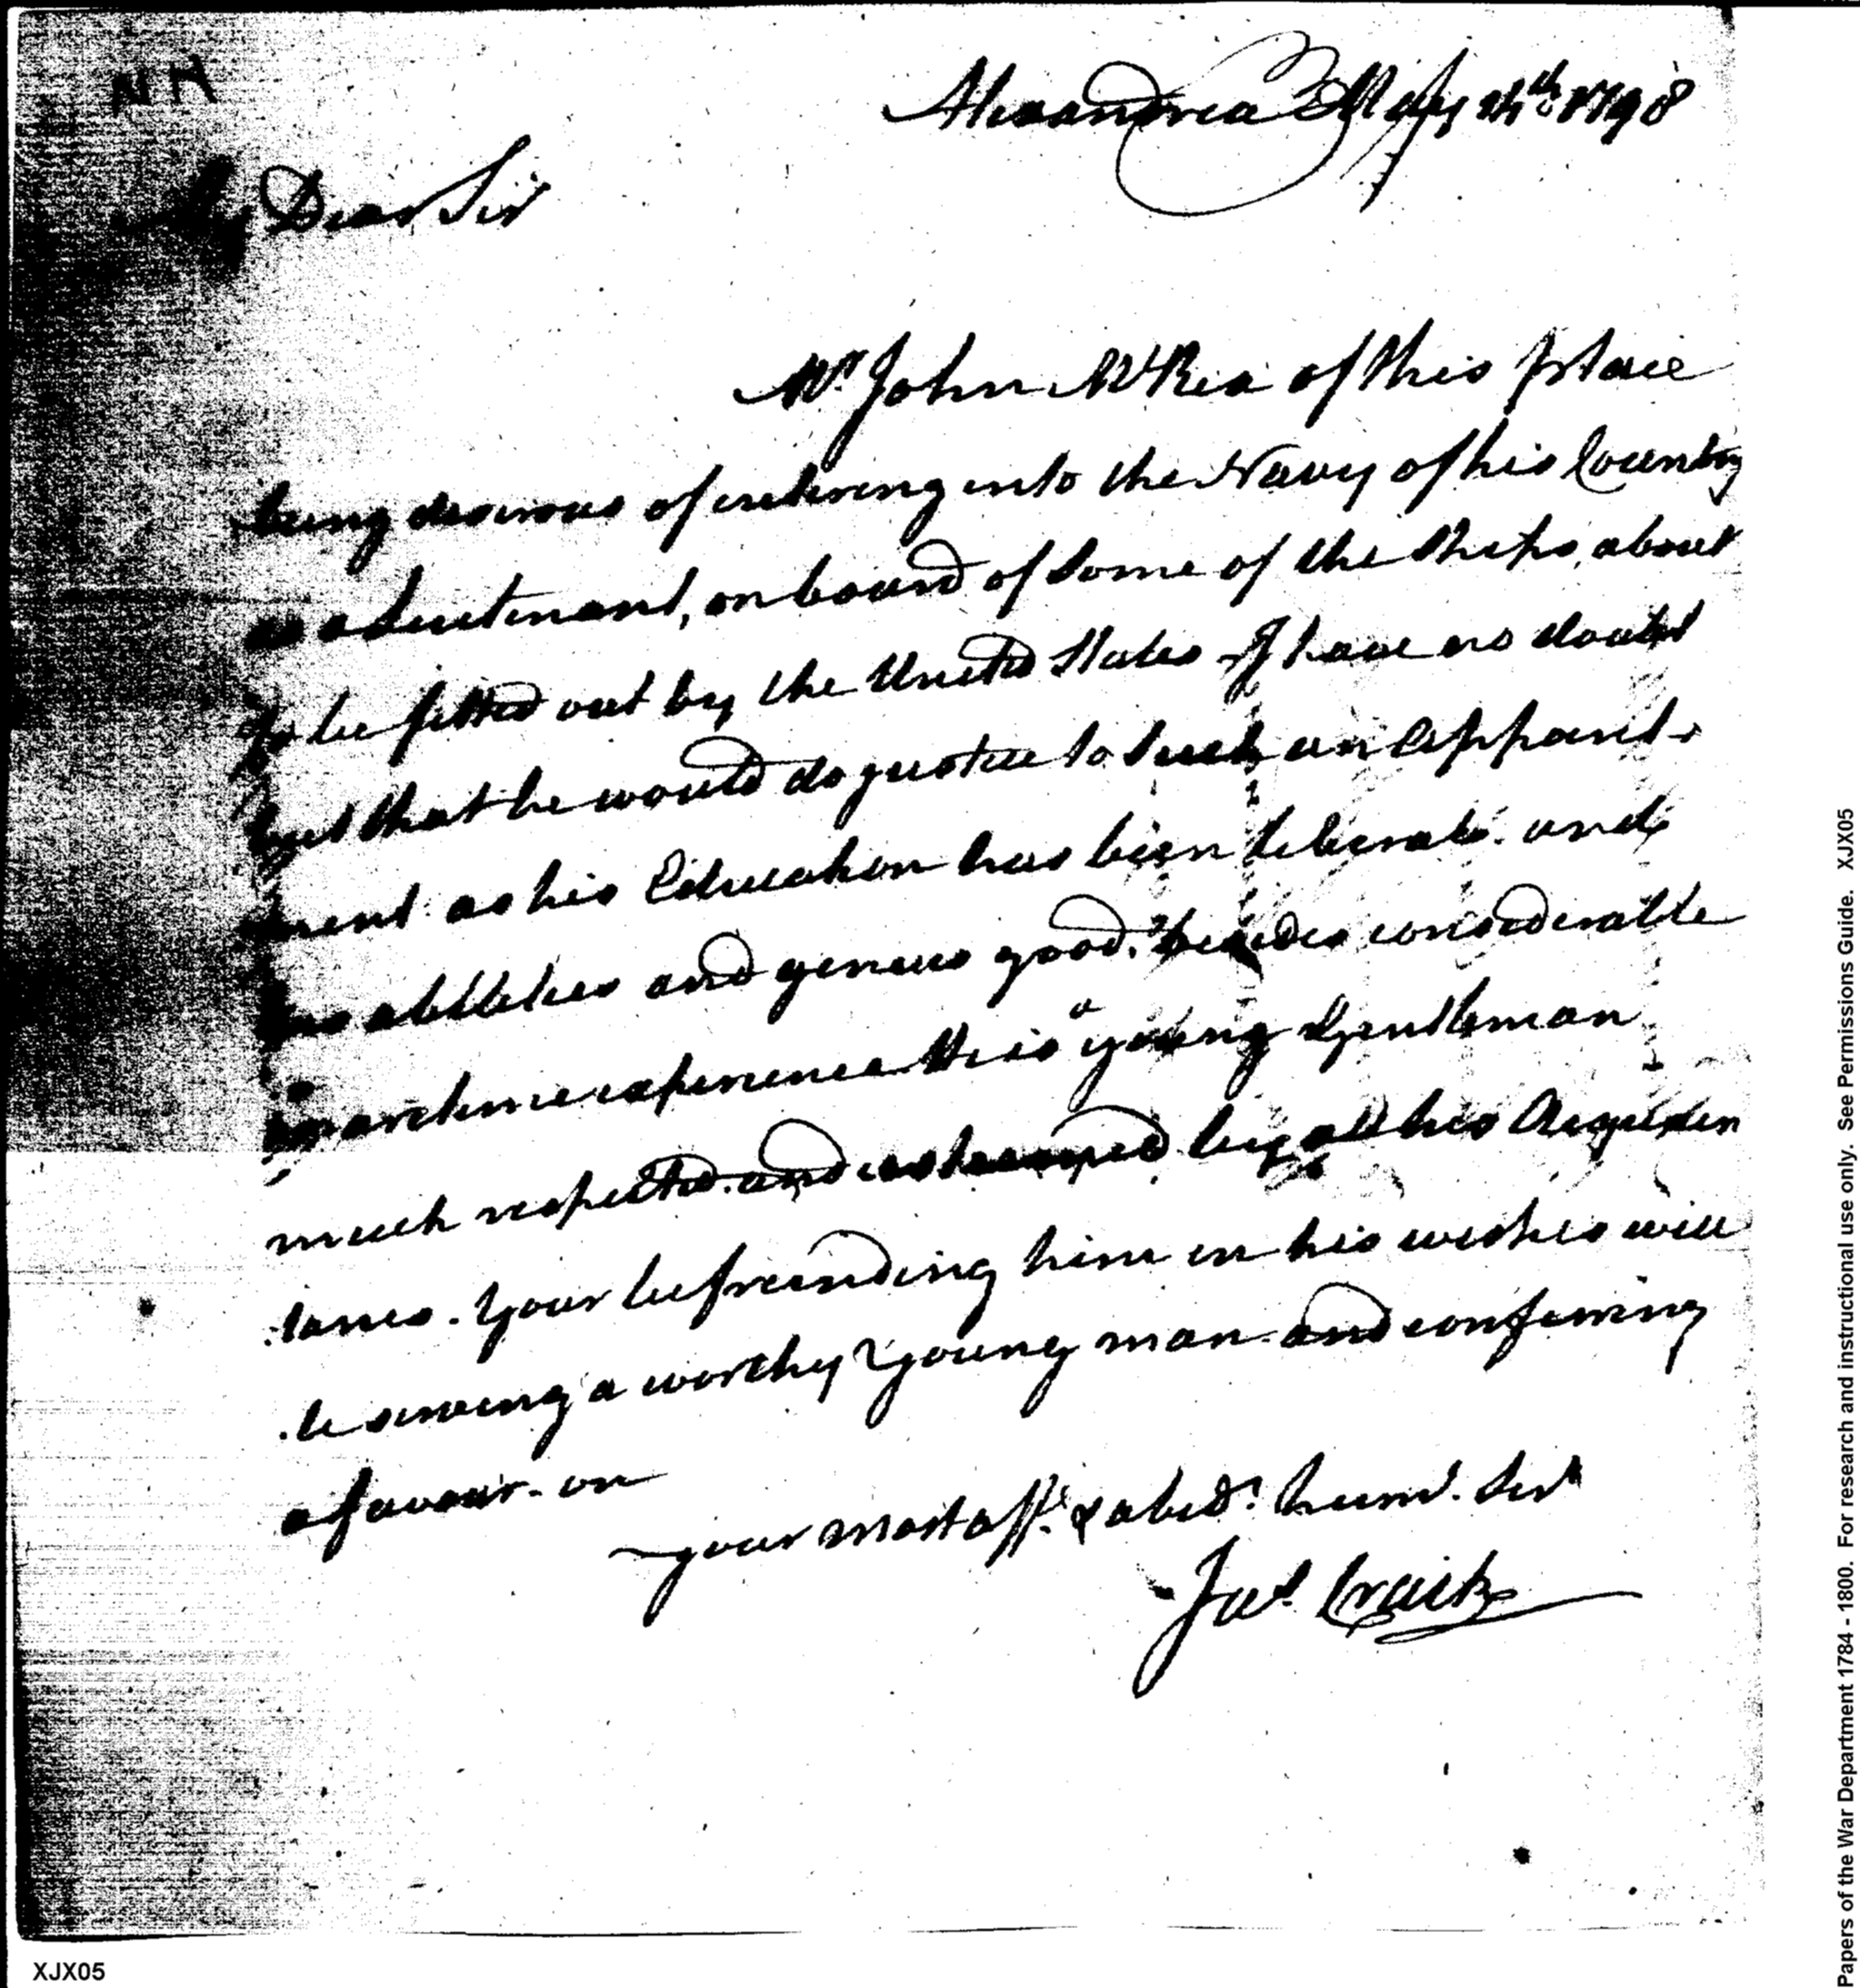 NH
Alexandria May 14th 1798
My Dear Sir
Mr. John McRea of this place
being desirous of entering into the Navy of his Country
as a Lieutenant, on board of some of the Ships, about
to be fitted out by the United States I have no doubt
but that he would do justice to such an appoint-
ment as his Education has been liberal. and
his abilities and genius good. besides considerable
maritime experience He is a young Gentleman
much respected and esteemed by all his Acquain
:tances. Your befreinding him in his wishes will
be serving a worthy young man and conferring
a favour on
your most afft. & obedt. huml. Servt
Jas. Craik
XJX05
Papers of the War Department 1784 - 1800. For research and instructional use only. See Permissions Guide. XJX05